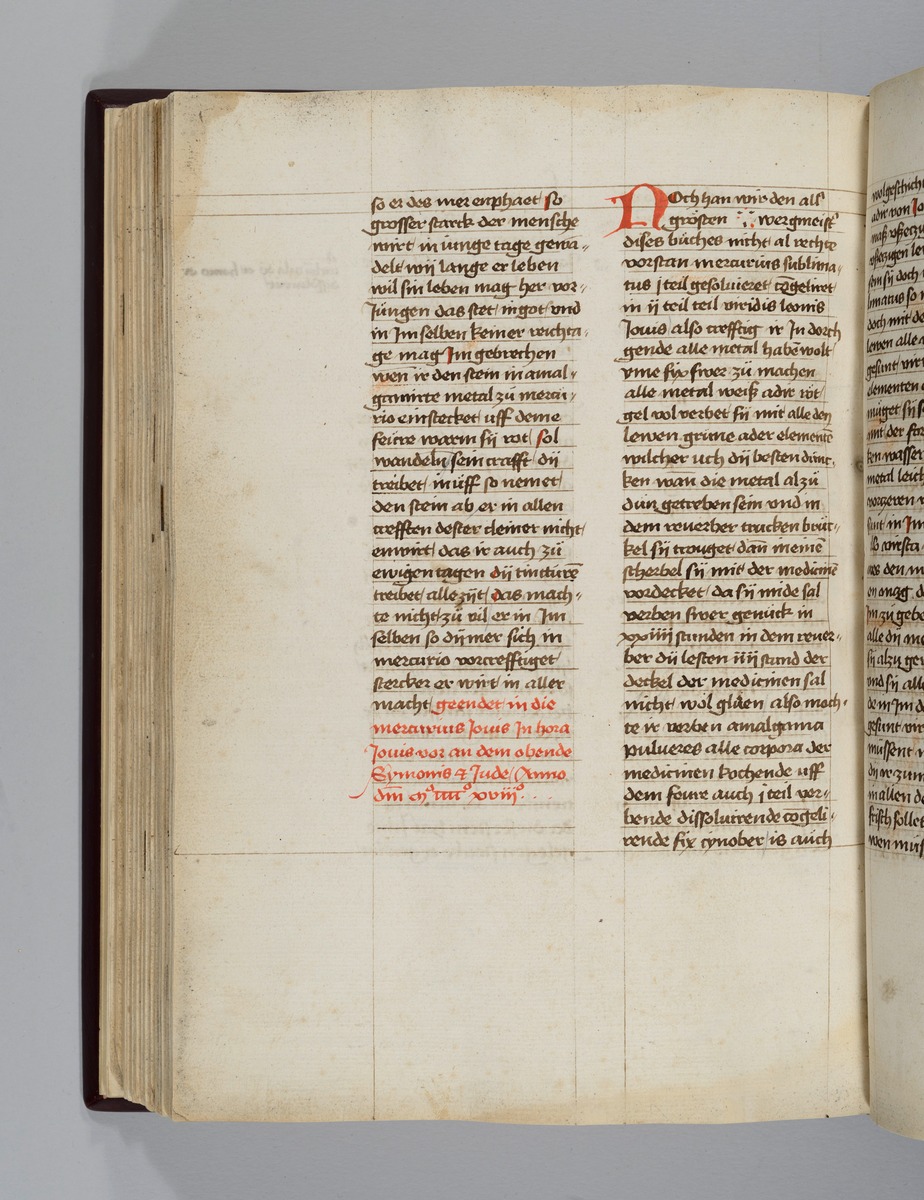 so er des mer enphaet so
grosser starck der mensche
wirt in iunge tage gewa-
delt wij lange er leben
wil sin leben mag her vor-
Jungen das stet in got vnd
in Jm selben keiner reichta-
ge mag Jm gebrechen
wen ir den stein in amal-
gamirte metal zu mercu-
rio einstecket uff deme
feure warm sij rot sol
wandeln sein crafft dij
treibet in uff so nemet
den stein ab er in allen
crefften dester cleiner nicht
enwirt das ir auch zu
ewigen tagen dij tincturē
treibet alle zijt das mach-
te nicht zu vil er in Jm
selben so dij mer sich in
mercurio vortrefftiget
stercker er wirt in aller
macht geendet in die
mercurius Jouis Jn hora
Jouis vor an dem obende
Symonis & Jude Anno
dm̄ mº iiiiº xviijº
Noch han wir den als
grösten wergmeist
dises büches nicht al rechte
vorstan mercurius sublima-
tus j teil gesoluieret cōgeliret
in ij teil teil viridis leonis
Jouis also crefftig ir Jn dorch
gende alle metal habē wolt
vme fix swer zü machen
alle metal weiß adir röt
gel vol verbet sij mit alle den
lewen grüne ader elementē
wilcher uch dij besten dunc-
ken wan die metal alzü
dün getreben sein vnd in
dem reuerber trucken brüc-
kel sij trouget dañ in einē
scherbel sij mit der medicinē
vordecket da sij mide sal
verben swer genück in
xxiiij stunden in dem reuer-
ber dij lesten iiij stund der
deckel der medicinen sal
nicht wöl glüen also moch-
te ir verben amalgama
pulueres alle corpora der
medicinen kochende uff
dem feure auch j teil ver-
bende dissoluirende cogeli-
rende fix cynober is auch